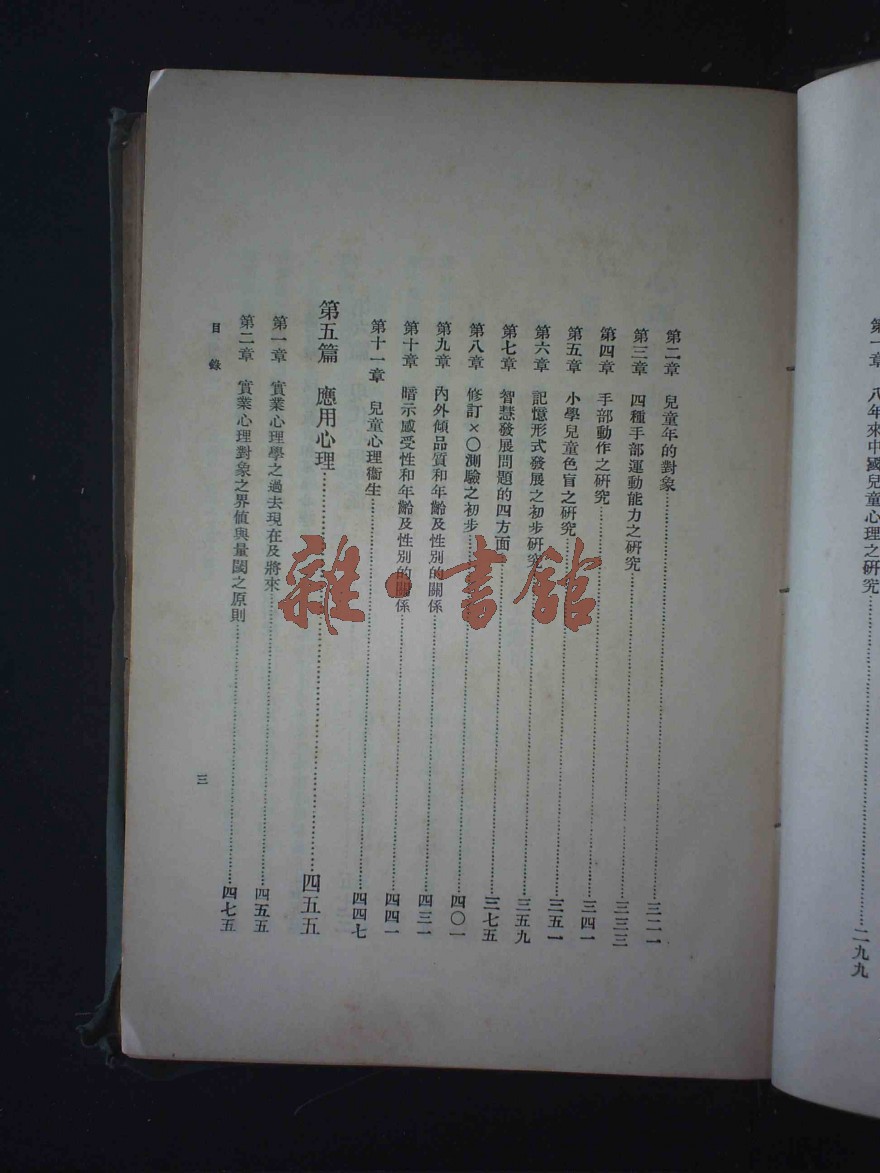 第一章　八年來中國兒童心理之研究……二九九
第二章　兒童年的對象……三二一
第三章　四種手部運動能力之研究……三三三
第四章　手部動作之研究……三四一
第五章　小學兒童色盲之研究……三五一
第六章　記憶形式發展之初步研究……三五九
第七章　智慧發展問題的四方面……三七五
第八章　修訂×〇測驗之初步……四〇一
第九章　內外傾品質和年齡及性別的關係……四三一
第十章　暗示感受性和年齡及性別的關係……四四一
第十一章　兒童心理衞生……四四七
第五篇　應用心理……四五五
第一章　實業心理學之過去現在及將來……四五五
第二章　實業心理對象之界値與量閾之原則……四七五
目錄
三
雜·書館